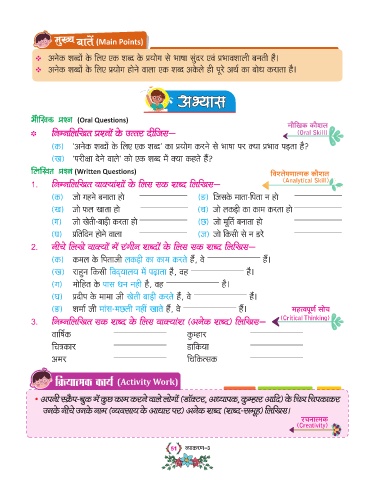 मुख्य बातें (Main Points)
❖ अनेक शब्दों के लिए एक शब्द के प्रयोग से भाषा सुंदर एवं प्रभावशाली बनती है।
❖ अनेक शब्दों के लिए प्रयोग होने वाला एक शब्द अकेले ही पूरे अर्थ का बोध कराता है।
अभ्यास
मौखिक प्रश्न (Oral Questions)
मौखिक कौशल
(Oral Skill)
❖ निम्नलिखित प्रश्नों के उत्तर दीजिए—
(क) 'अनेक शब्दों के लिए एक शब्द' का प्रयोग करने से भाषा पर क्या प्रभाव पड़ता है?
(ख) 'परीक्षा देने वाले' को एक शब्द में क्या कहते हैं?
लिखित प्रश्न (Written Questions)
विश्लेषणात्मक कौशल
(Analytical Skill)
1. निम्नलिखित वाक्यांशों के लिए एक शब्द लिखिए—
(क) जो गहने बनाता हो
(ङ) जिसके माता-पिता न हो
(ख) जो फल खाता हो
(च) जो लकड़ी का काम करता हो
(ग) जो खेती-बाड़ी करता हो
(छ) जो मूर्ति बनाता हो
(घ) प्रतिदिन होने वाला
(ज) जो किसी से न डरे
2. नीचे लिखे वाक्यों में रंगीन शब्दों के लिए एक शब्द लिखिए—
(क) कमल के पिताजी लकड़ी का काम करते हैं, वे हैं।
(ख) राहुल किसी विद्यालय में पढ़ाता है, वह है।
(ग) मोहित के पास धन नहीं है, वह है।
(घ) प्रदीप के मामा जी खेती बाड़ी करते हैं, वे हैं।
(ङ) शर्मा जी मांस-मछली नहीं खाते हैं, वे हैं।
महत्वपूर्ण सोच
(Critical Thinking)
3. निम्नलिखित एक शब्द के लिए वाक्यांश (अनेक शब्द) लिखिए—
वार्षिक कुम्हार
चित्रकार डाकिया
अमर चिकित्सक
क्रियात्मक कार्य (Activity Work)
• अपनी स्क्रैप-बुक में कुछ काम करने वाले लोगों (डॉक्टर, अध्यापक, कुम्हार आदि) के चित्र चिपकाकर
उनके नीचे उनके नाम (व्यवसाय के आधार पर) अनेक शब्द (शब्द-समूह) लिखिए।
रचनात्मक
(Creativity)
51 व्याकरण-5